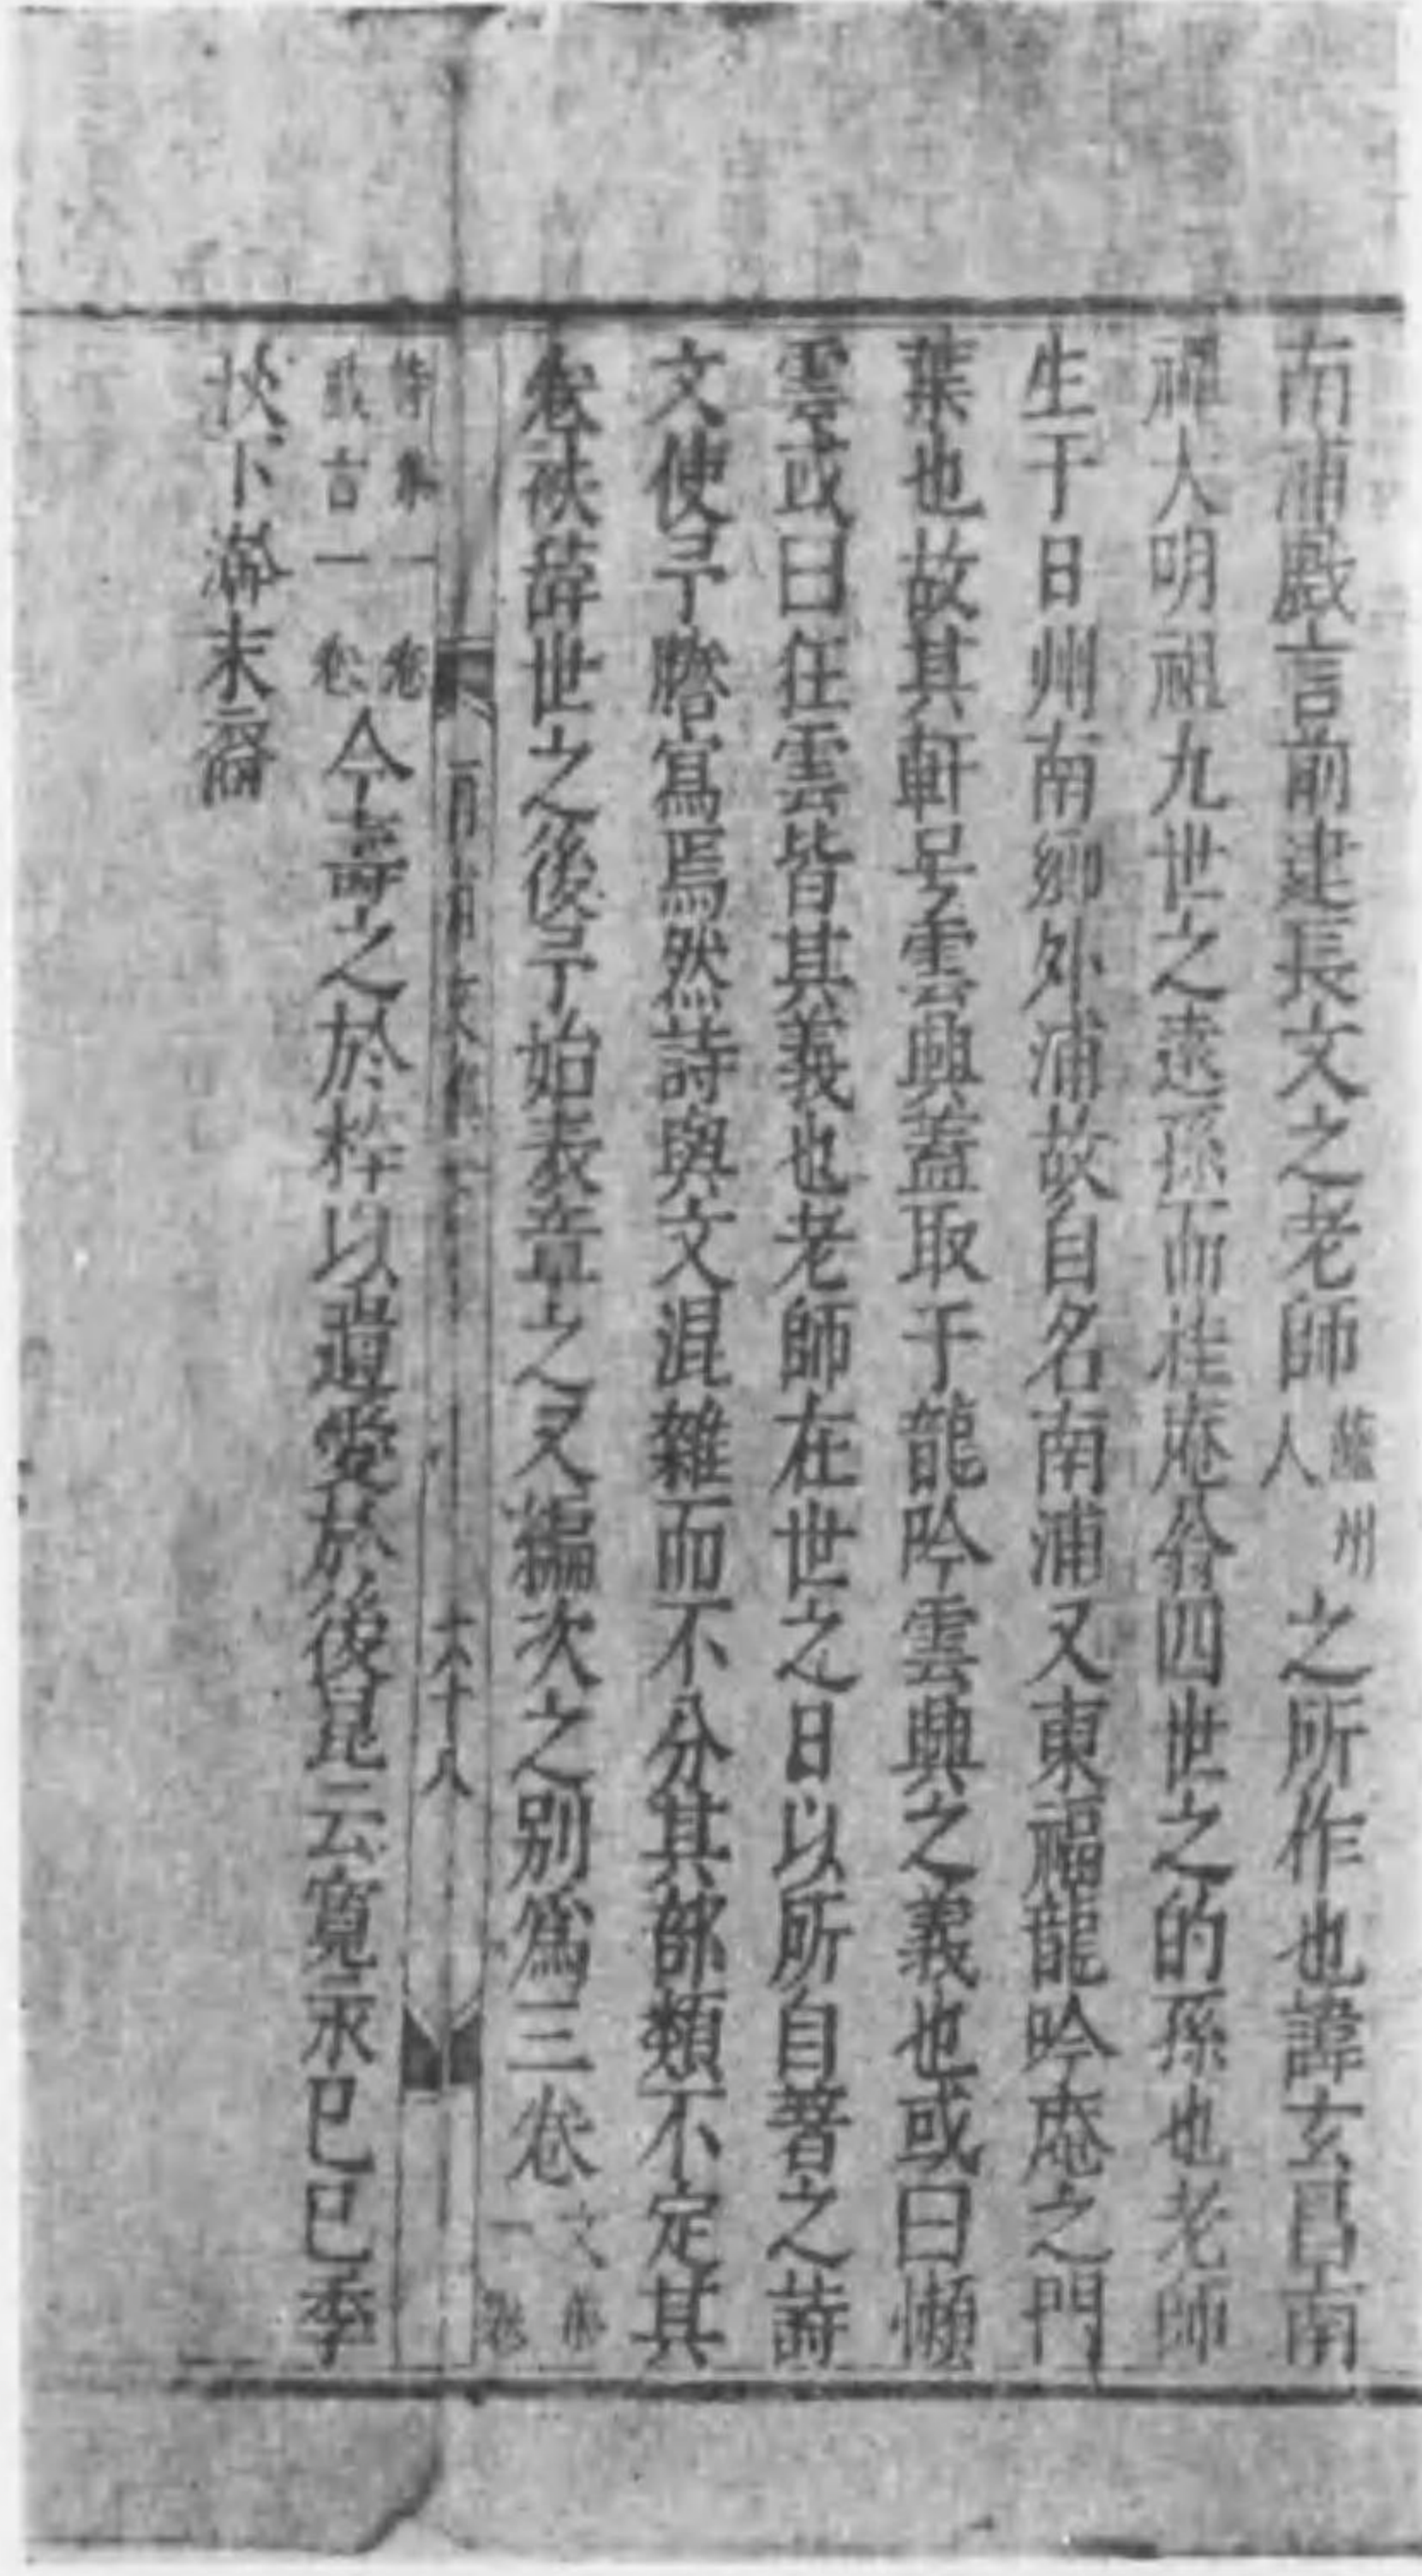 南浦戲言前建長文之老師薩州人之所作也諱玄昌南
禪大明祖九世之遠孫而桂庵翁四世之的孫也老師
生于日州南鄉外浦故自名南浦又東福龍吟庵之門
葉也故其軒号雲興蓋取于龍吟雲興之義也或曰懶
雲或曰任雲皆其義也老師在世之日以所自著之詩
文使予謄寫焉然詩與文混雜而不分其部類不定其
卷袟辭世之後予始表章之又編次之別爲三卷文集一卷
六十八
詩集一卷戲言一卷今壽之於梓以遺愛於後昆云寬永己巳季
秋卜澣末裔